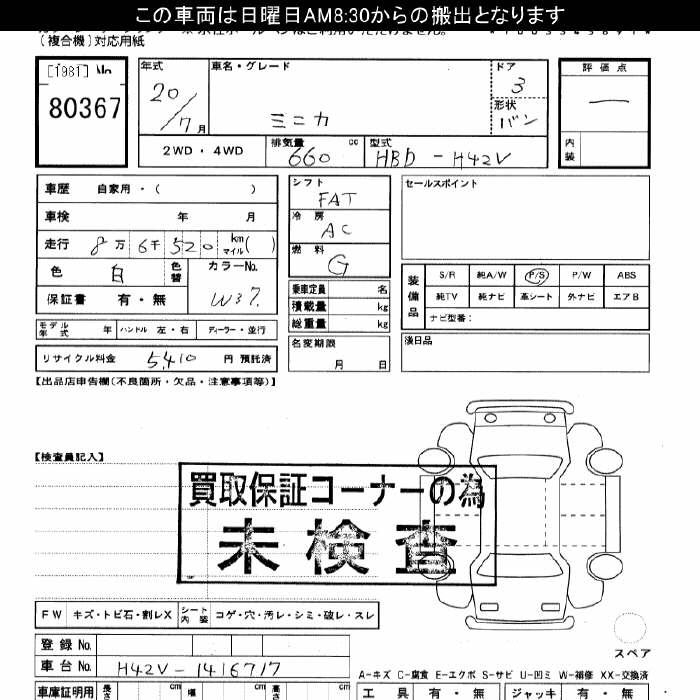 この車両は日曜日AM8:30からの搬出となります
(複合機)対応用紙
[1981] No
80367
年式
20/7月
車名・グレード
ミニカ
ドア
3
形状
バン
評価点
—
内装
2WD・4WD
排気量
660 cc
型式
HBD-H42V
車歴 自家用・( )
車検 年 月
走行 8万 6千 520 km マイル( )
色 白 色替 カラーNo. W37
保証書 有・無
モデル年式 年 ハンドル 左・右 ディーラー・並行
リサイクル料金 5,410 円 預託済
シフト
FAT
冷房
AC
燃料
G
乗車定員 名
積載量 kg
総重量 kg
名変期限
月 日
セールスポイント
装備品
S/R 純A/W P/S P/W ABS
純TV 純ナビ 革シート 外ナビ エアB
ナビ型番:
後日品
【出品店申告欄(不良箇所・欠品・注意事項等)】
【検査員記入】
買取保証コーナーの為
未検査
FW キズ・トビ石・割レX シート内装 コゲ・穴・汚レ・シミ・破レ・スレ
登録No.
車台No. H42V-1416717
車庫証明用 長さ cm 幅 cm 高さ cm
スペア
A-キズ C-腐食 E-エクボ S-サビ U-凹ミ W-補修 XX-交換済
工具 有・無 ジャッキ 有・無